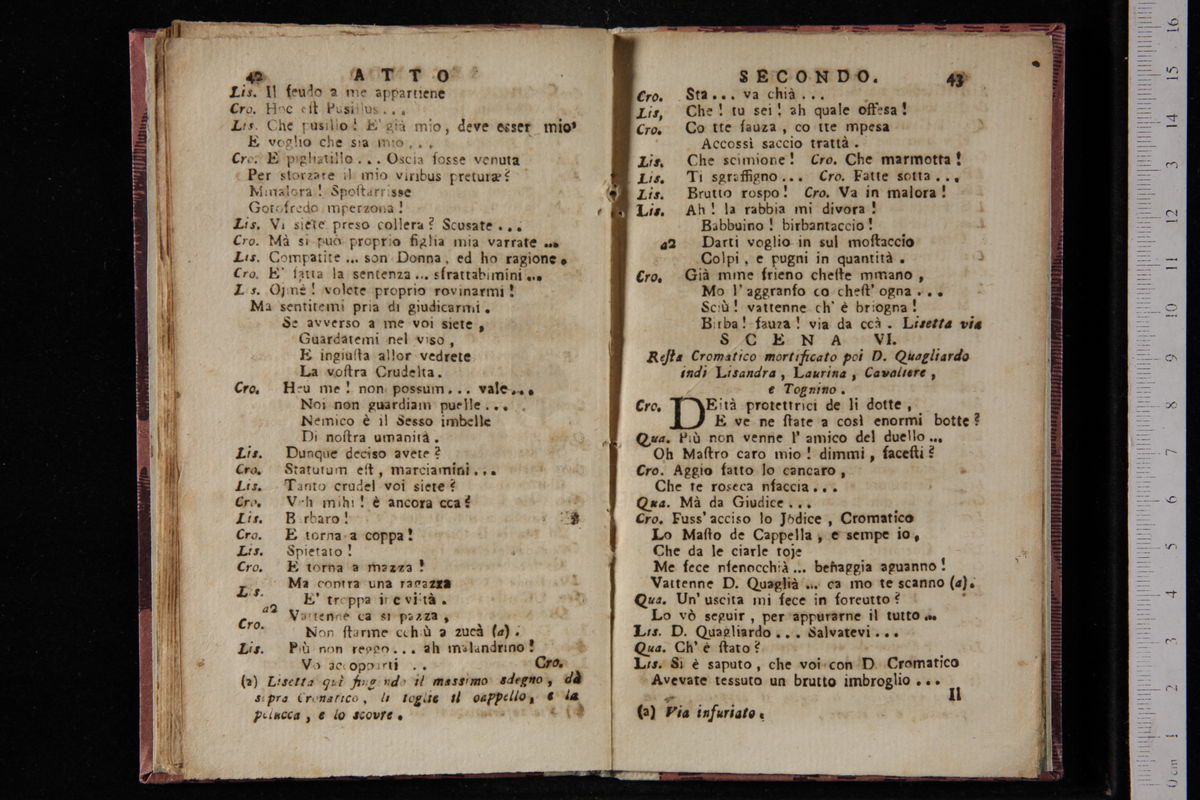 42 ATTO
Lis. Il feudo a me appartiene
Cro. Hoc est Pusillus...
Lis. Che pusillo! E' già mio, deve esser mio'
E voglio che sia mio...
Cro. E pigliatillo... Oscia fosse venuta
Per storzare il mio viribus preturæ?
Mmalora! Spostarrisse
Gotofredo mperzona!
Lis. Vi siete preso collera? Scusate...
Cro. Mà si può proprio figlia mia varrate...
Lis. Compatite... son Donna, ed ho ragione.
Cro. E' fatta la sentenza... sfrattabimini...
Lis. Ojmè! volete proprio rovinarmi!
Ma sentitemi pria di giudicarmi.
Se avverso a me voi siete,
Guardatemi nel viso,
E ingiusta allor vedrete
La vostra Crudelta.
Cro. Heu me! non possum... vale...
Noi non guardiam puelle...
Nemico è il Sesso imbelle
Di nostra umanità.
Lis. Dunque deciso avete?
Cro. Statutum est, marciamini...
Lis. Tanto crudel voi siete?
Cro. Veh mihi! è ancora cca?
Lis. Birbaro!
Cro. E torna a coppa!
Lis. Spietato!
Cro. E torna a mazza!
Lis. Ma contra una ragazza
E' troppa inciviltà.
a2
Cro. Vattenne ca si pazza,
Non starme cchiù a zucà (a).
Lis. Più non reggo... ah malandrino!
Vo accopparti ..
Cro.
(a) Lisetta quì fingendo il massimo sdegno, dà
sopra Cromatico, li toglie il cappello, e la
pelucca, e lo scovre.
SECONDO. 43
Cro. Sta... va chià...
Lis, Che! tu sei! ah quale offesa!
Cro. Co tte fauza, co tte mpesa
Accossì saccio trattà.
Lis. Che scimione! Cro. Che marmotta!
Lis. Ti sgraffigno... Cro. Fatte sotta...
Lis. Brutto rospo! Cro. Va in malora!
Lis. Ah! la rabbia mi divora!
Babbuino! birbantaccio!
a2 Darti voglio in sul mostaccio
Colpi, e pugni in quantità.
Cro. Già mme frieno cheste mmano,
Mo l'aggranfo co chest' ogna...
Sciù! vattenne ch' è briogna!
Birba! fauza! via da ccà. Lisetta via
SCENA VI.
Resta Cromatico mortificato poi D. Quagliardo
indi Lisandra, Laurina, Cavaliere,
e Tognino.
Cro. DEità protettrici de li dotte,
E ve ne state a così enormi botte?
Qua. Più non venne l'amico del duello...
Oh Mastro caro mio! dimmi, facesti?
Cro. Aggio fatto lo cancaro,
Che te roseca nfaccia...
Qua. Mà da Giudice...
Cro. Fuss' acciso lo Jodice, Cromatico
Lo Masto de Cappella, e sempe io,
Che da le ciarle toje
Me fece nfenocchià... benaggia aguanno!
Vattenne D. Quaglià... ca mo te scanno (a).
Qua. Un' uscita mi fece in foreutto?
Lo vò seguir, per appurarne il tutto...
Lis. D. Quagliardo... Salvatevi...
Qua. Ch' è stato?
Lis. Si è saputo, che voi con D Cromatico
Avevate tessuto un brutto imbroglio...
Il
(a) Via infuriato.